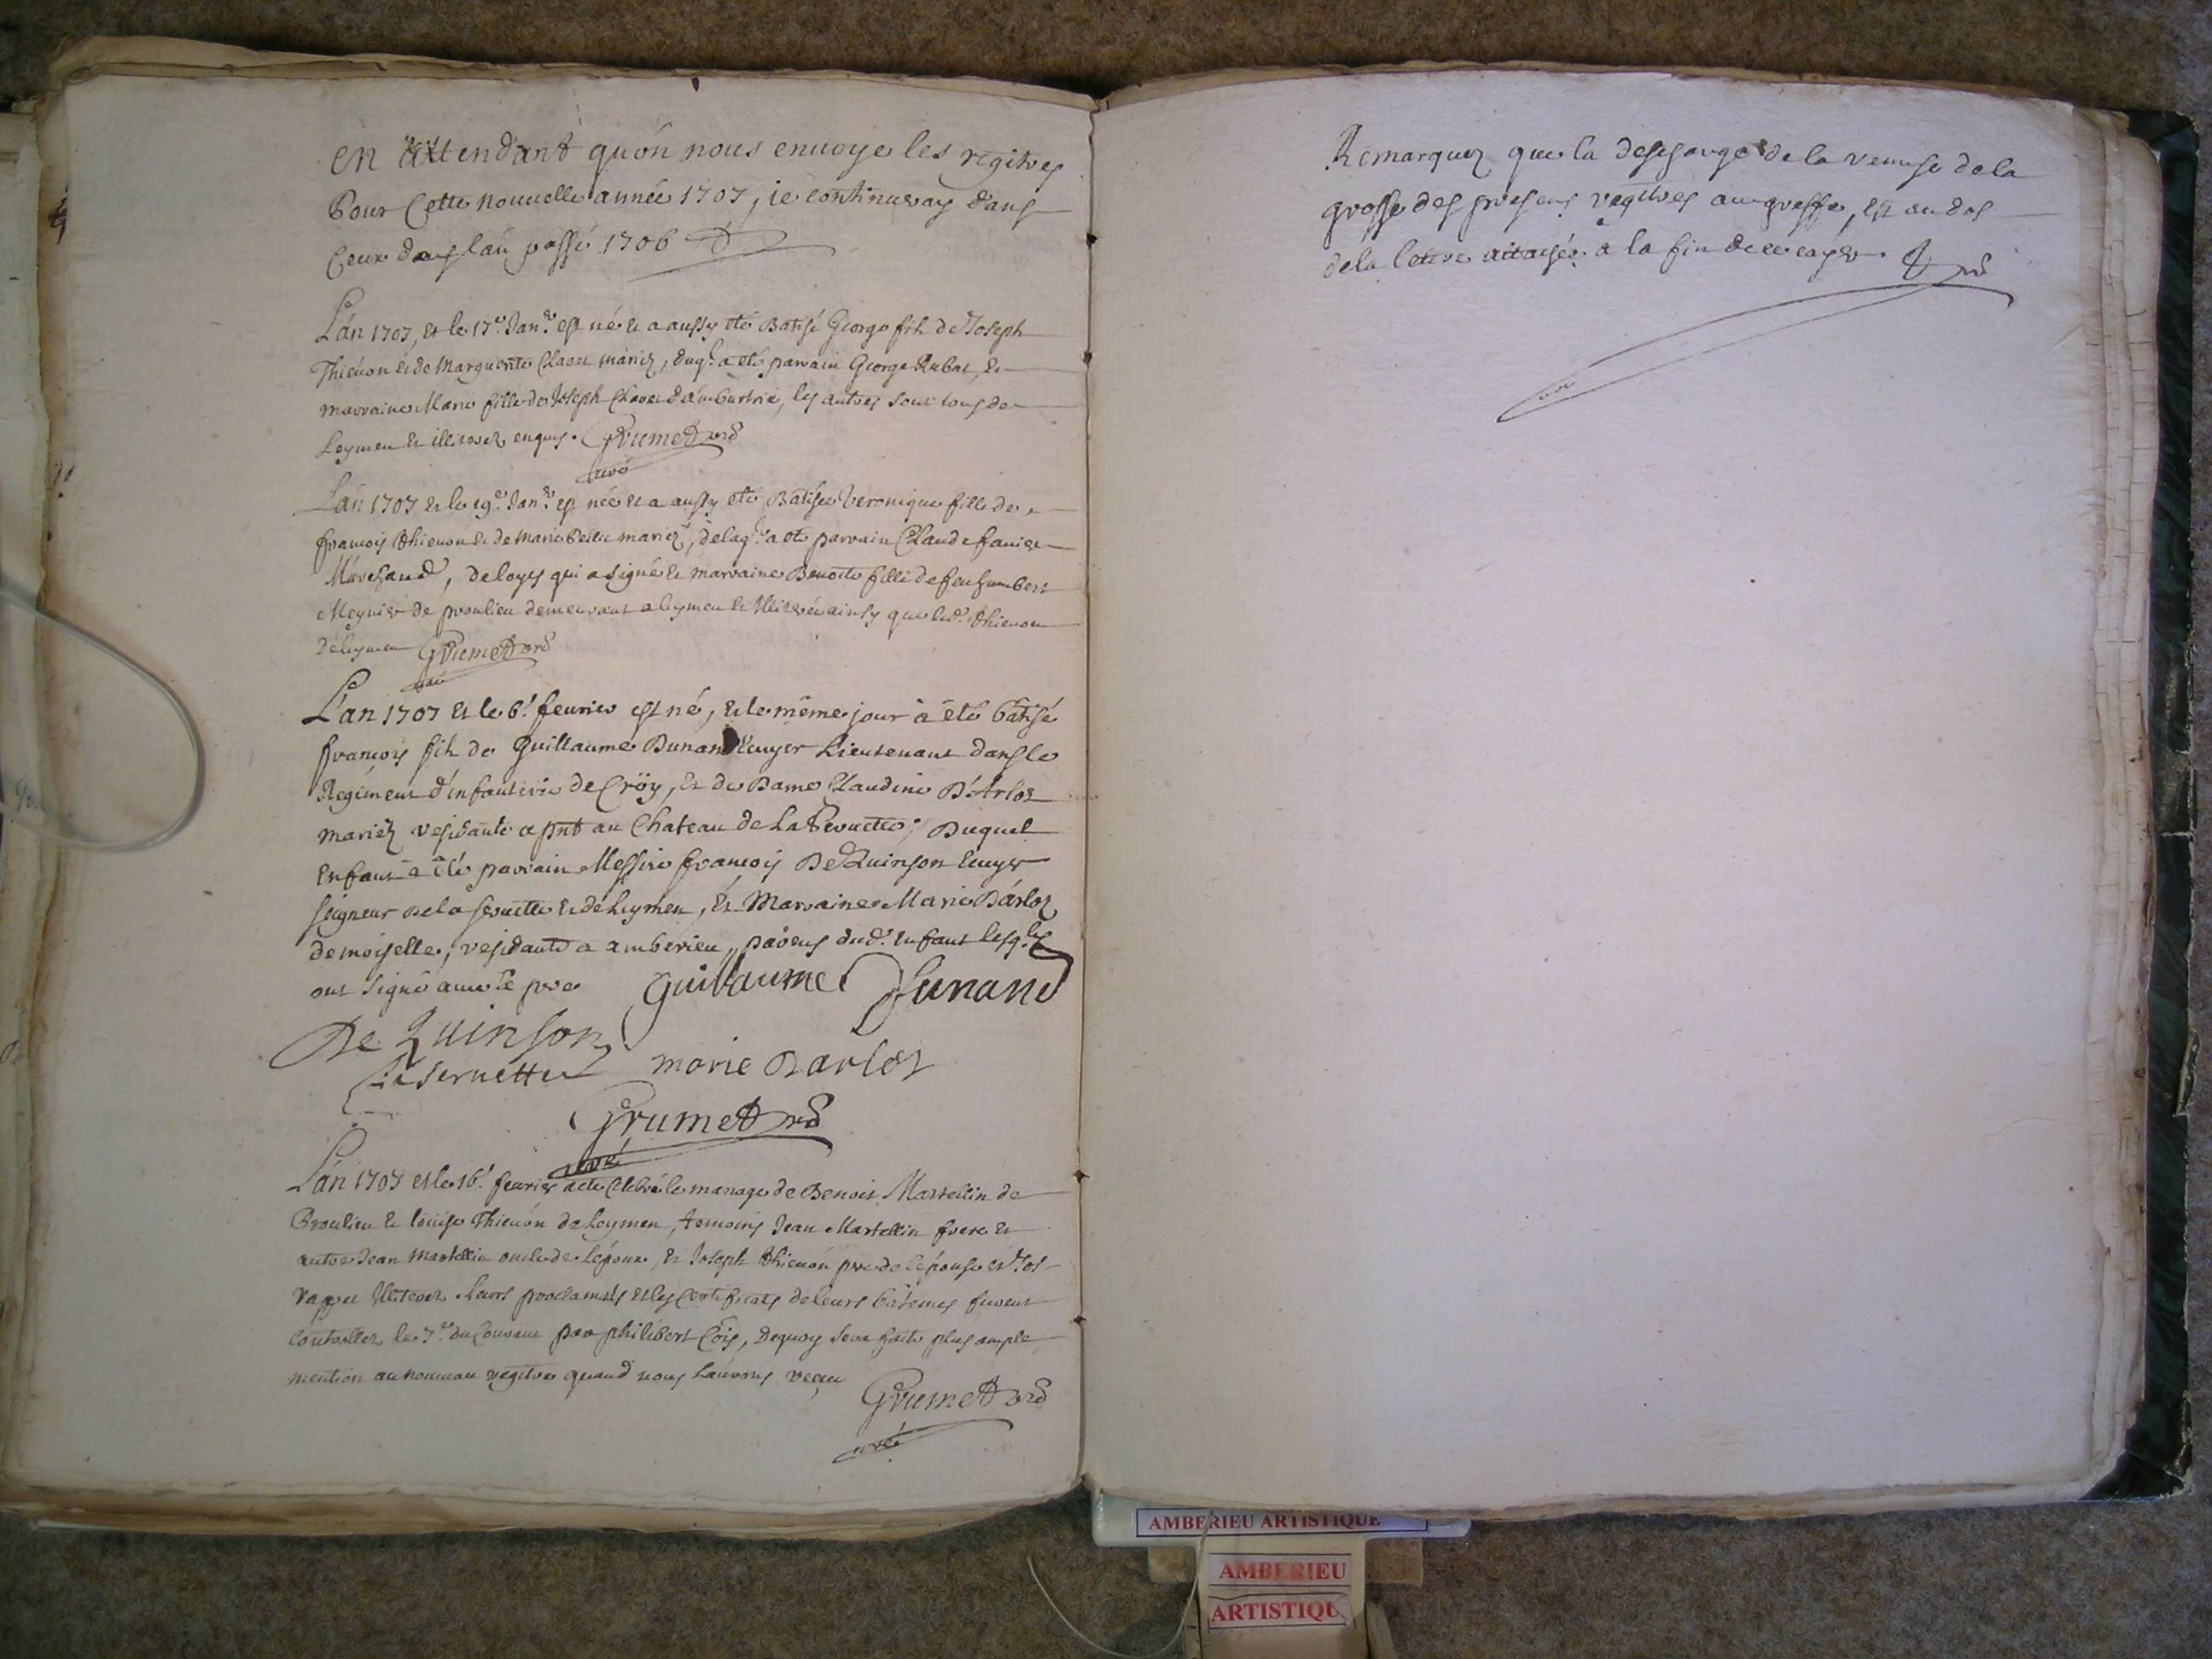 en attendant qu'on nous enuoye les regitres
Pour Cette nouuelle année 1707, ie continueray dans
Ceux de l'an passé 1706
L'an 1707, et le 17e Janr est né et a aussy eté Batisé George fils de Joseph
Thieuon et de Marguerite Clauet mariez, duql a eté parrain George Rubat, et
marraine Marie fille de Joseph Clauet d'ambutrix, les autres sont tous de
Leymen et illiterez enquis. Grumet
curé
L'an 1707 et le 19e Janr est née et a aussy eté Batisée Veronique fille de
françois thieuon et de Marie mariez, de laqle a eté parrain Claude
Marchand, de loyes qui a signé et marraine Benoite fille de feu humbert
Meynier de proulieu demeurant a leymen et illiterée ainsy que led. thieuon
de leymen Grumet
curé
L'an 1707 et le 6e feurier est né, et le même jour à êté batisé
françois fils de Guillaume Dunand Ecuyer Lieutenant dans le
Regiment d'infanterie de Cröy, et de Dame Claudine D'Arloz
mariez residants a pnt au Chateau de La Seruette; Duquel
Enfant à êté parrain Messire françois De Quinson Ecuyer
seigneur de la seruette et de leymen, et Marraine Marie D'arloz
demoiselle, residante a amberieu, parens dud. Enfant lesqls
ont signé auec le pere Guillaume Dunand
De Quinson
La seruette marie Darloz
Grumet
curé
L'an 1707 et le 16e feurier a eté Celebré le mariage de Benoit Martellin de
Proulieu et louise Thieuon de Leymen, temoins Jean Martellin frere et
autre Jean Martellin oncle de l'époux, et Joseph thieuon pere de l'épouse et
illiterez. Leurs proclamats et les Certificats de leurs batemes furent
Controllez le 7e du Courant par philibert, dequoy sera faite plus ample
mention au nouueau regitre quand nous l'aurons reçeu
Grumet
curé
Remarquez que la descharge de la remise de la
grosse des presens regitres au greffe, est au dos
de la lettre attachée a la fin de ce cayer.
AMBERIEU ARTISTIQUE
AMBERIEU
ARTISTIQU